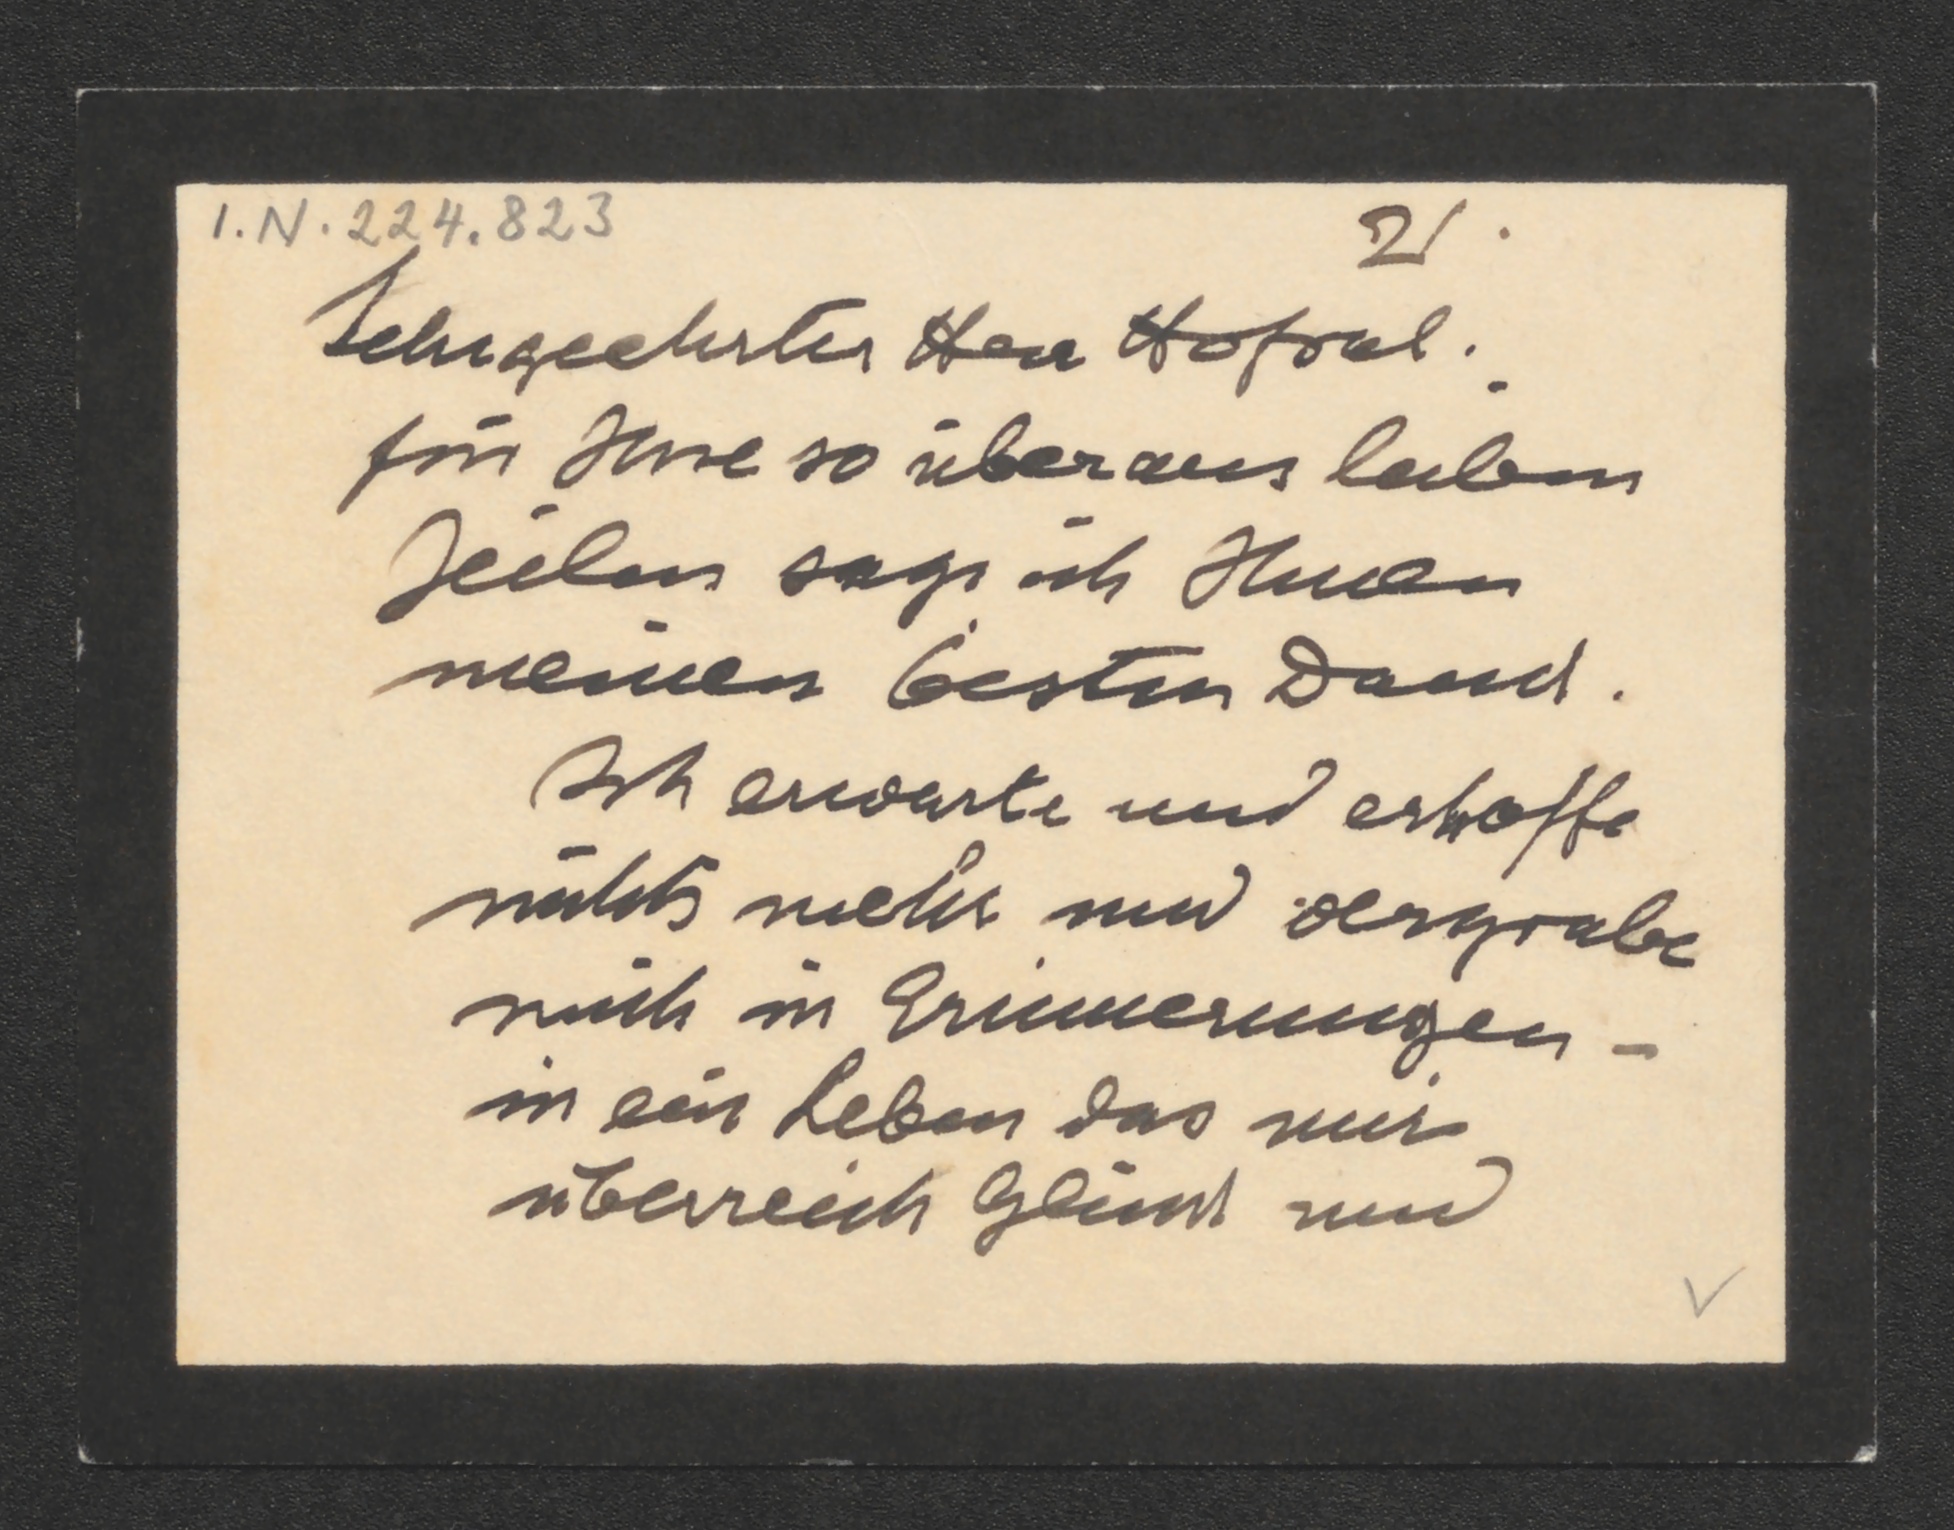 I.N. 224.823
2/.
Sehrgeehrter Herr Hofrat.
für Ihre so überaus lieben
Zeilen sage ich Ihnen
meinen besten Dank.
Ich erwarte und erhoffe
nichts mehr und vergrabe
mich in Erinnerungen –
in ein Leben das mir
überreich Glück und